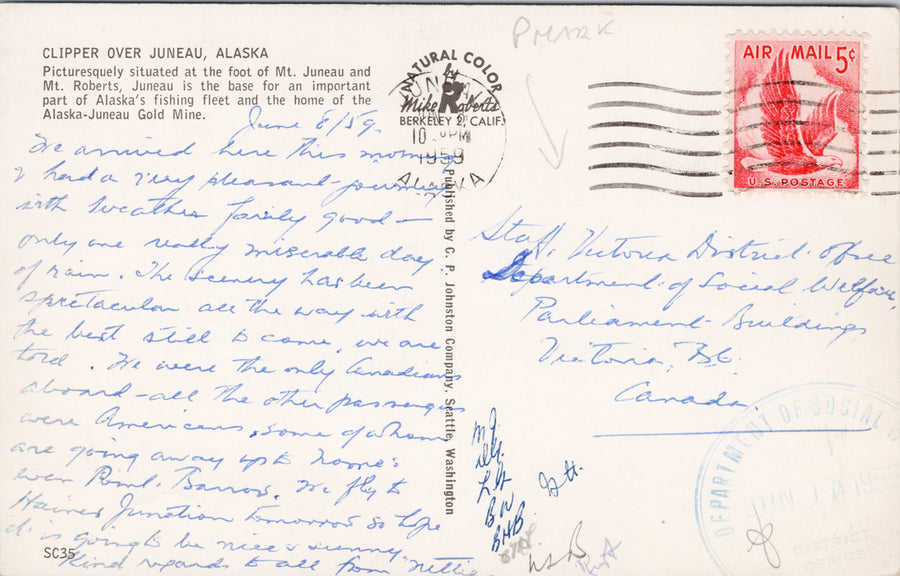 CLIPPER OVER JUNEAU, ALASKA
Picturesquely situated at the foot of Mt. Juneau and
Mt. Roberts, Juneau is the base for an important
part of Alaska's fishing fleet and the home of the
Alaska-Juneau Gold Mine.
June 8/59.
We arrived here this morning
& had a very pleasant journey
with weather fairly good —
only one really miserable day
of rain. The scenery has been
spectacular all the way with
the best still to come, we are
told. We were the only Canadians
aboard - all the other passengers
were Americans, some of whom
are going away up to Nome &
even Point Barrow. We fly to
Haines Junction tomorrow so hope
it is going to be nice & sunny
Kind regards to all from "Nellie
SC35
Published by C. P. Johnston Company, Seattle, Washington
NATURAL COLOR
by
Mike Roberts
BERKELEY 2, CALIF.
JUNEAU
PM
1959
ALASKA
PMARK
AIR MAIL 5¢
U.S. POSTAGE
Staff, Victoria District Office
Department of Social Welfare,
Parliament Buildings
Victoria, B.C.
Canada
LH
BW
BHB
DEPARTMENT OF SOCIAL W
JUN 195
DISTRICT
OFFICE